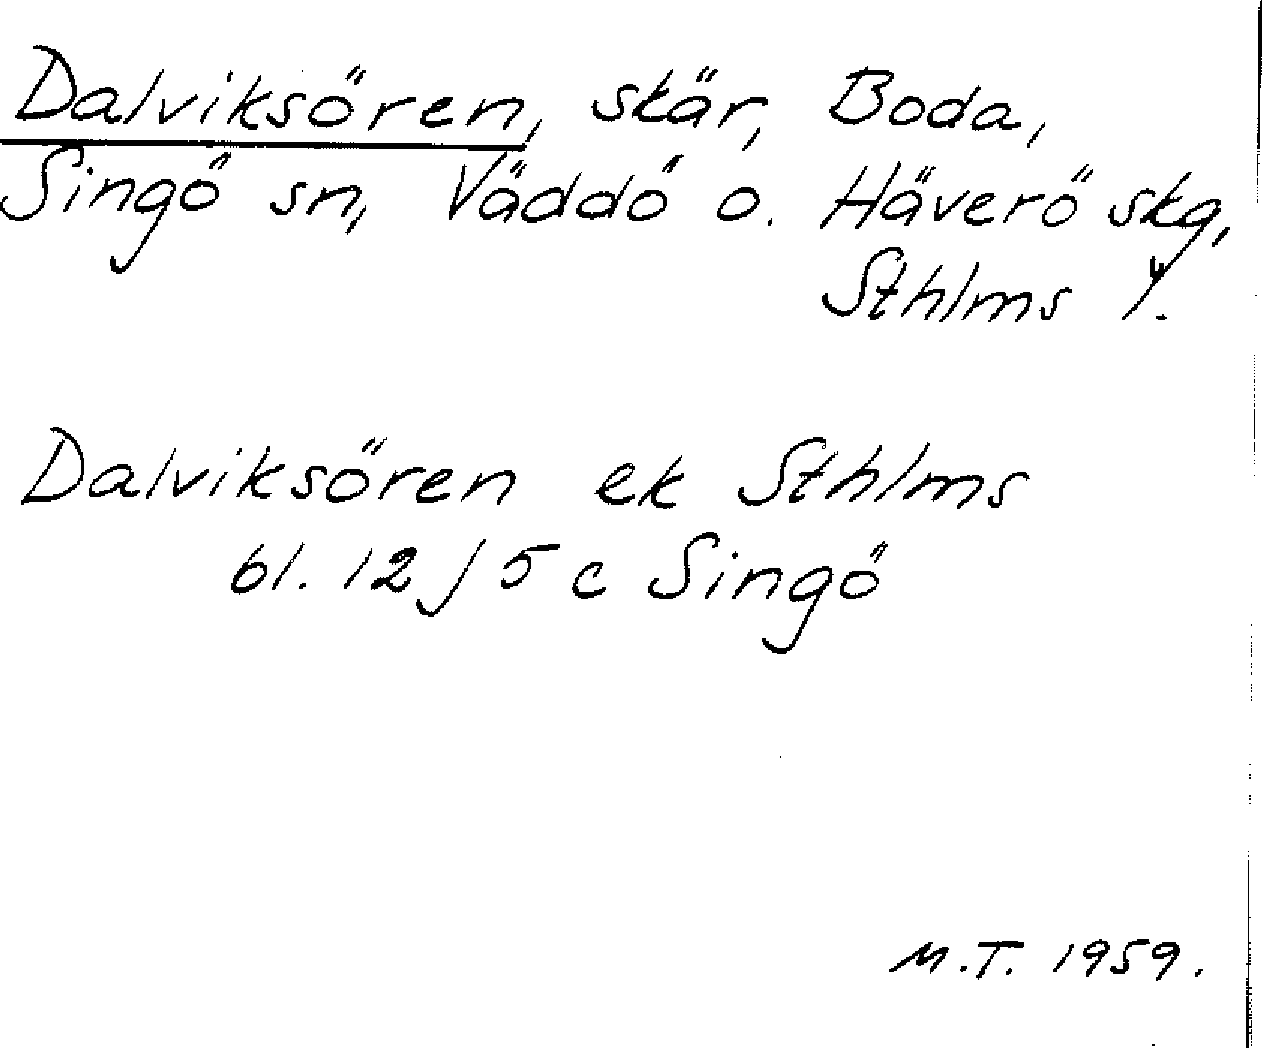 Dalviksören, skär, Boda,
Singö sn, Väddö o. Häverö skg,
Sthlms l.
Dalviksören ek Sthlms
bl. 12J 5c Singö
M.T. 1959.